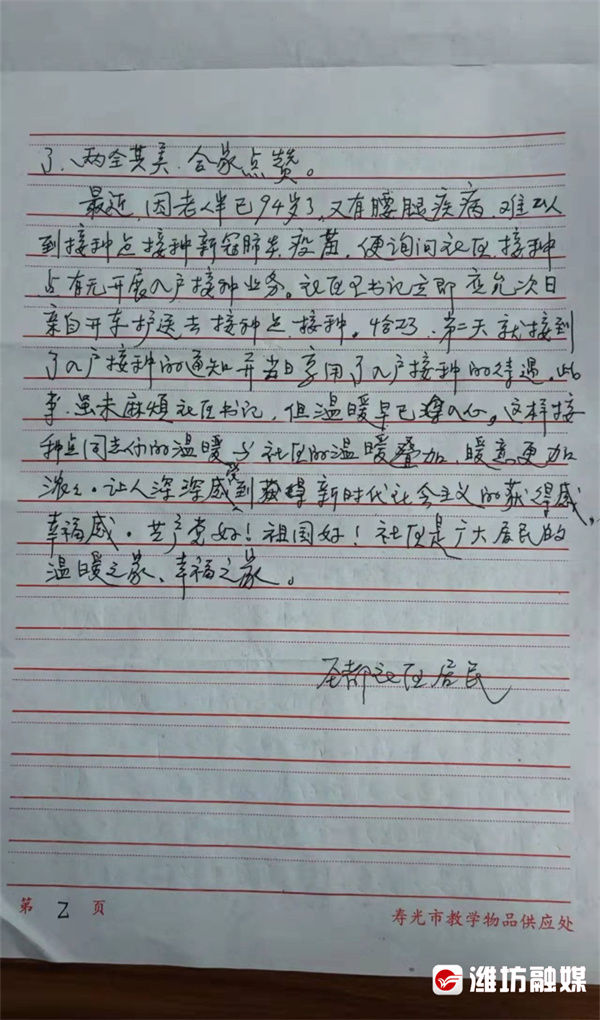 了、两全其美、合家点赞。
最近,因老人年已94岁了,又有腰腿疾病,难以
到接种点接种新冠肺炎疫苗,便询问社区、接种
点有无开展入户接种业务。社区王书记立即应允次日
亲自开车护送去接种点接种。恰巧,第二天就接到
了入户接种的通知并当日享用了入户接种的待遇。此
事,虽未麻烦社区书记,但温暖早已入心。这样接
种点同志们的温暖与社区的温暖叠加,暖意更加
浓浓。让人深深感到新时代社会主义的获得感,
幸福感。共产党好!祖国好!社区是广大居民的
温暖之家、幸福之家。
圣都社区居民
第 2 页
寿光市教学物品供应处
潍坊融媒